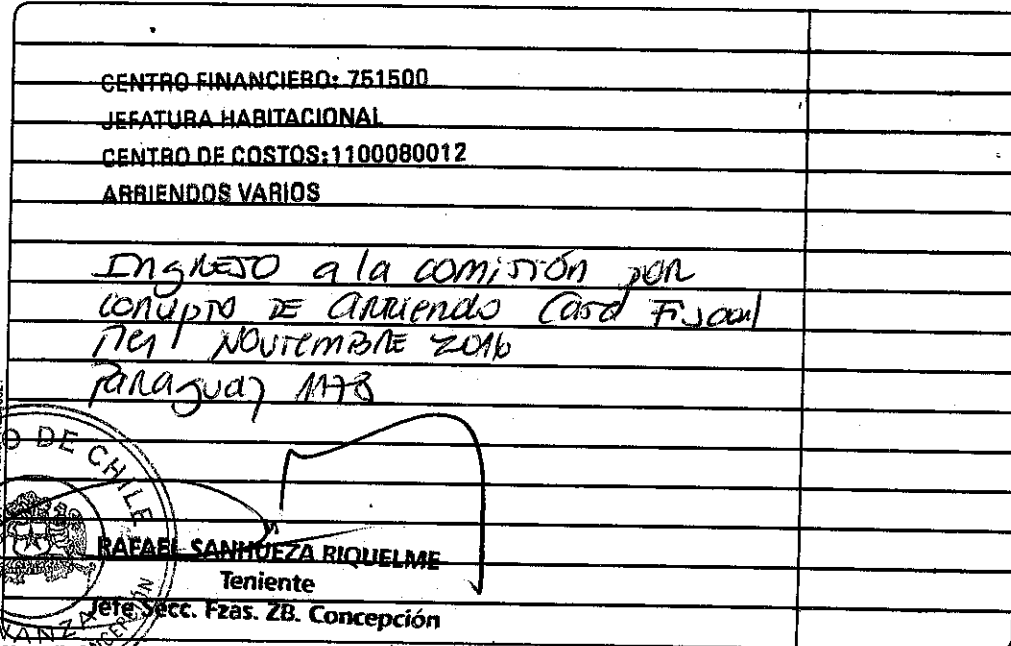 CENTRO FINANCIERO: 751500
JEFATURA HABITACIONAL
CENTRO DE COSTOS:1100080012
ARRIENDOS VARIOS
Ingreso a la comisión por
concepto DE arriendo Casa Fiscal
mes Noviembre 2016
Paraguay 1178
O DE CHILE
RAFAEL SANHUEZA RIQUELME
Teniente
Jefe Secc. Fzas. ZB. Concepción